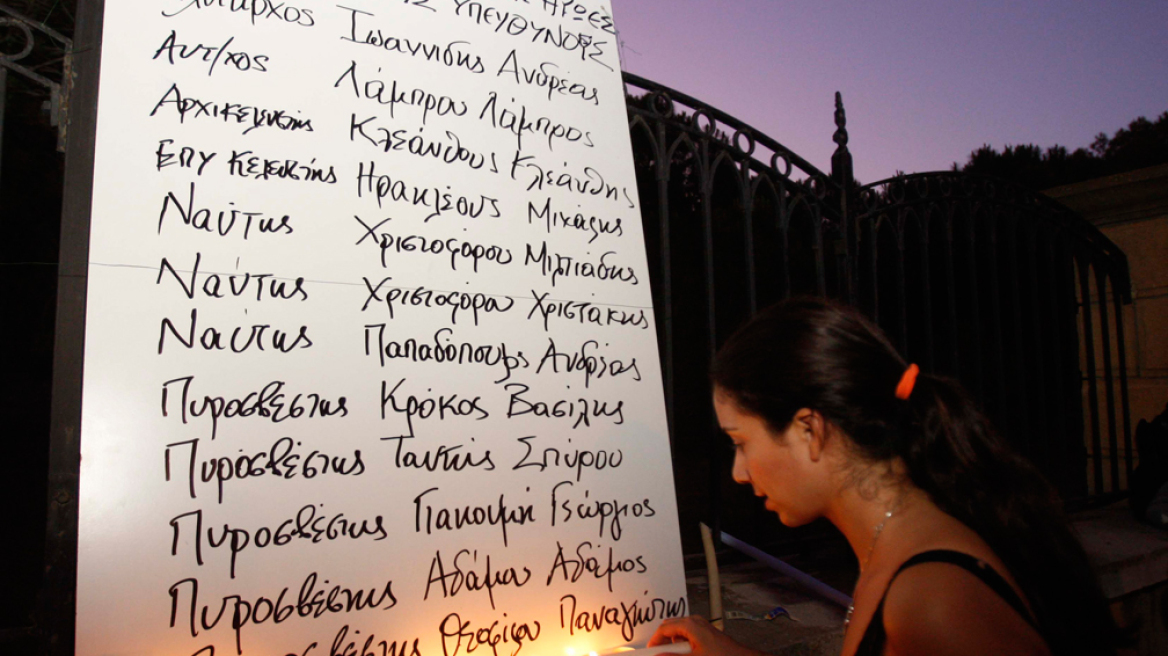 ΗΡΩΕΣ
ΥΠΕΥΘΥΝΟΥΣ
Ιωαννίδης Ανδρέας
Αντ/χος Λάμπρου Λάμπρος
Αρχικελευστής Κλεάνθους Κλεάνθης
Επυ Κελευστής Ηρακλέους Μιχάλης
Ναύτης Χριστοφόρου Μιλτιάδης
Ναύτης Χριστοφόρου Χριστάκης
Ναύτης Παπαδόπουλος Ανδρέας
Πυροσβέστης Κρόκος Βασίλης
Πυροσβέστης Ταντής Σπύρου
Πυροσβέστης Γιακουμή Γεώργιος
Πυροσβέστης Αδάμου Αδάμος
Πυροσβέστης Θεοφίλου Παναγιώτης